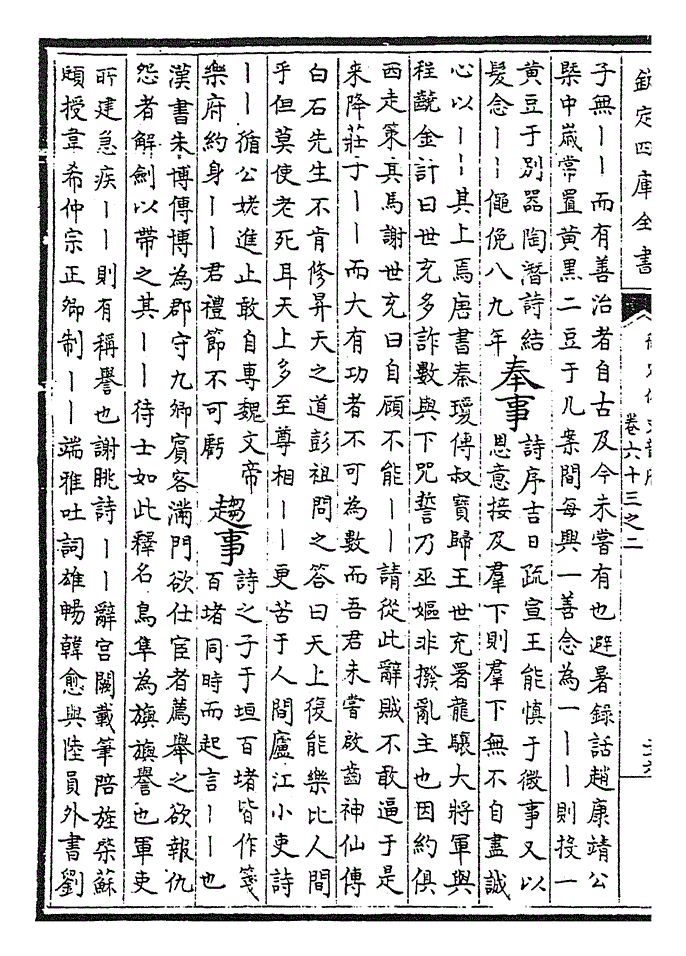 欽定四庫全書
卷六十三之二
子無丨丨而有善治者自古及今未嘗有也避暑錄話趙康靖公
槩中嵗常置黃黑二豆于几案間每興一善念為一丨丨則投一
黃豆于別器陶潛詩結
髮念丨丨僶俛八九年
奉事
詩序吉日疏宣王能慎于微事又以
恩意接及羣下則羣下無不自盡誠
心以丨丨其上焉唐書秦瓊傳叔寶歸王世充署龍驤大將軍與
程齩金計曰世充多詐數與下咒誓乃巫嫗非撥亂主也因約俱
西走策其馬謝世充曰自顧不能丨丨請從此辭賊不敢逼于是
来降莊子丨丨而大有功者不可為數而吾君未嘗啟齒神仙傳
白石先生不肯修昇天之道彭祖問之答曰天上復能樂比人間
乎但莫使老死耳天上多至尊相丨丨更苦于人間廬江小吏詩
丨丨循公姥進止敢自專魏文帝
樂府約身丨丨君禮節不可虧
趨事
詩之子于垣百堵皆作箋
百堵同時而起言丨丨也
漢書朱博傳博為郡守九卿賓客滿門欲仕宦者薦舉之欲報仇
怨者解劍以帶之其丨丨待士如此釋名鳥隼為旟旟譽也軍吏
所建急疾丨丨則有稱譽也謝朓詩丨丨辭宮闕載筆陪旌棨蘇
頲授韋希仲宗正卿制丨丨端雅吐詞雄暢韓愈與陸員外書劉